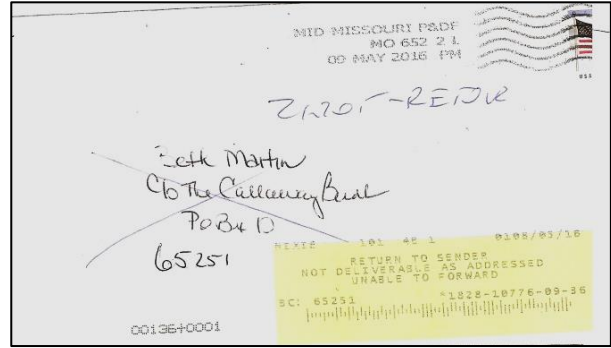 MID MISSOURI P&DF
MO 652 2 L
09 MAY 2016 PM
Martin
C/o The Callaway
PO Box D
65251
NIXIE 101 4E 1 0106/03/16
RETURN TO SENDER
NOT DELIVERABLE AS ADDRESSED
UNABLE TO FORWARD
BC: 65251 *1828-10776-09-36
00136+0001